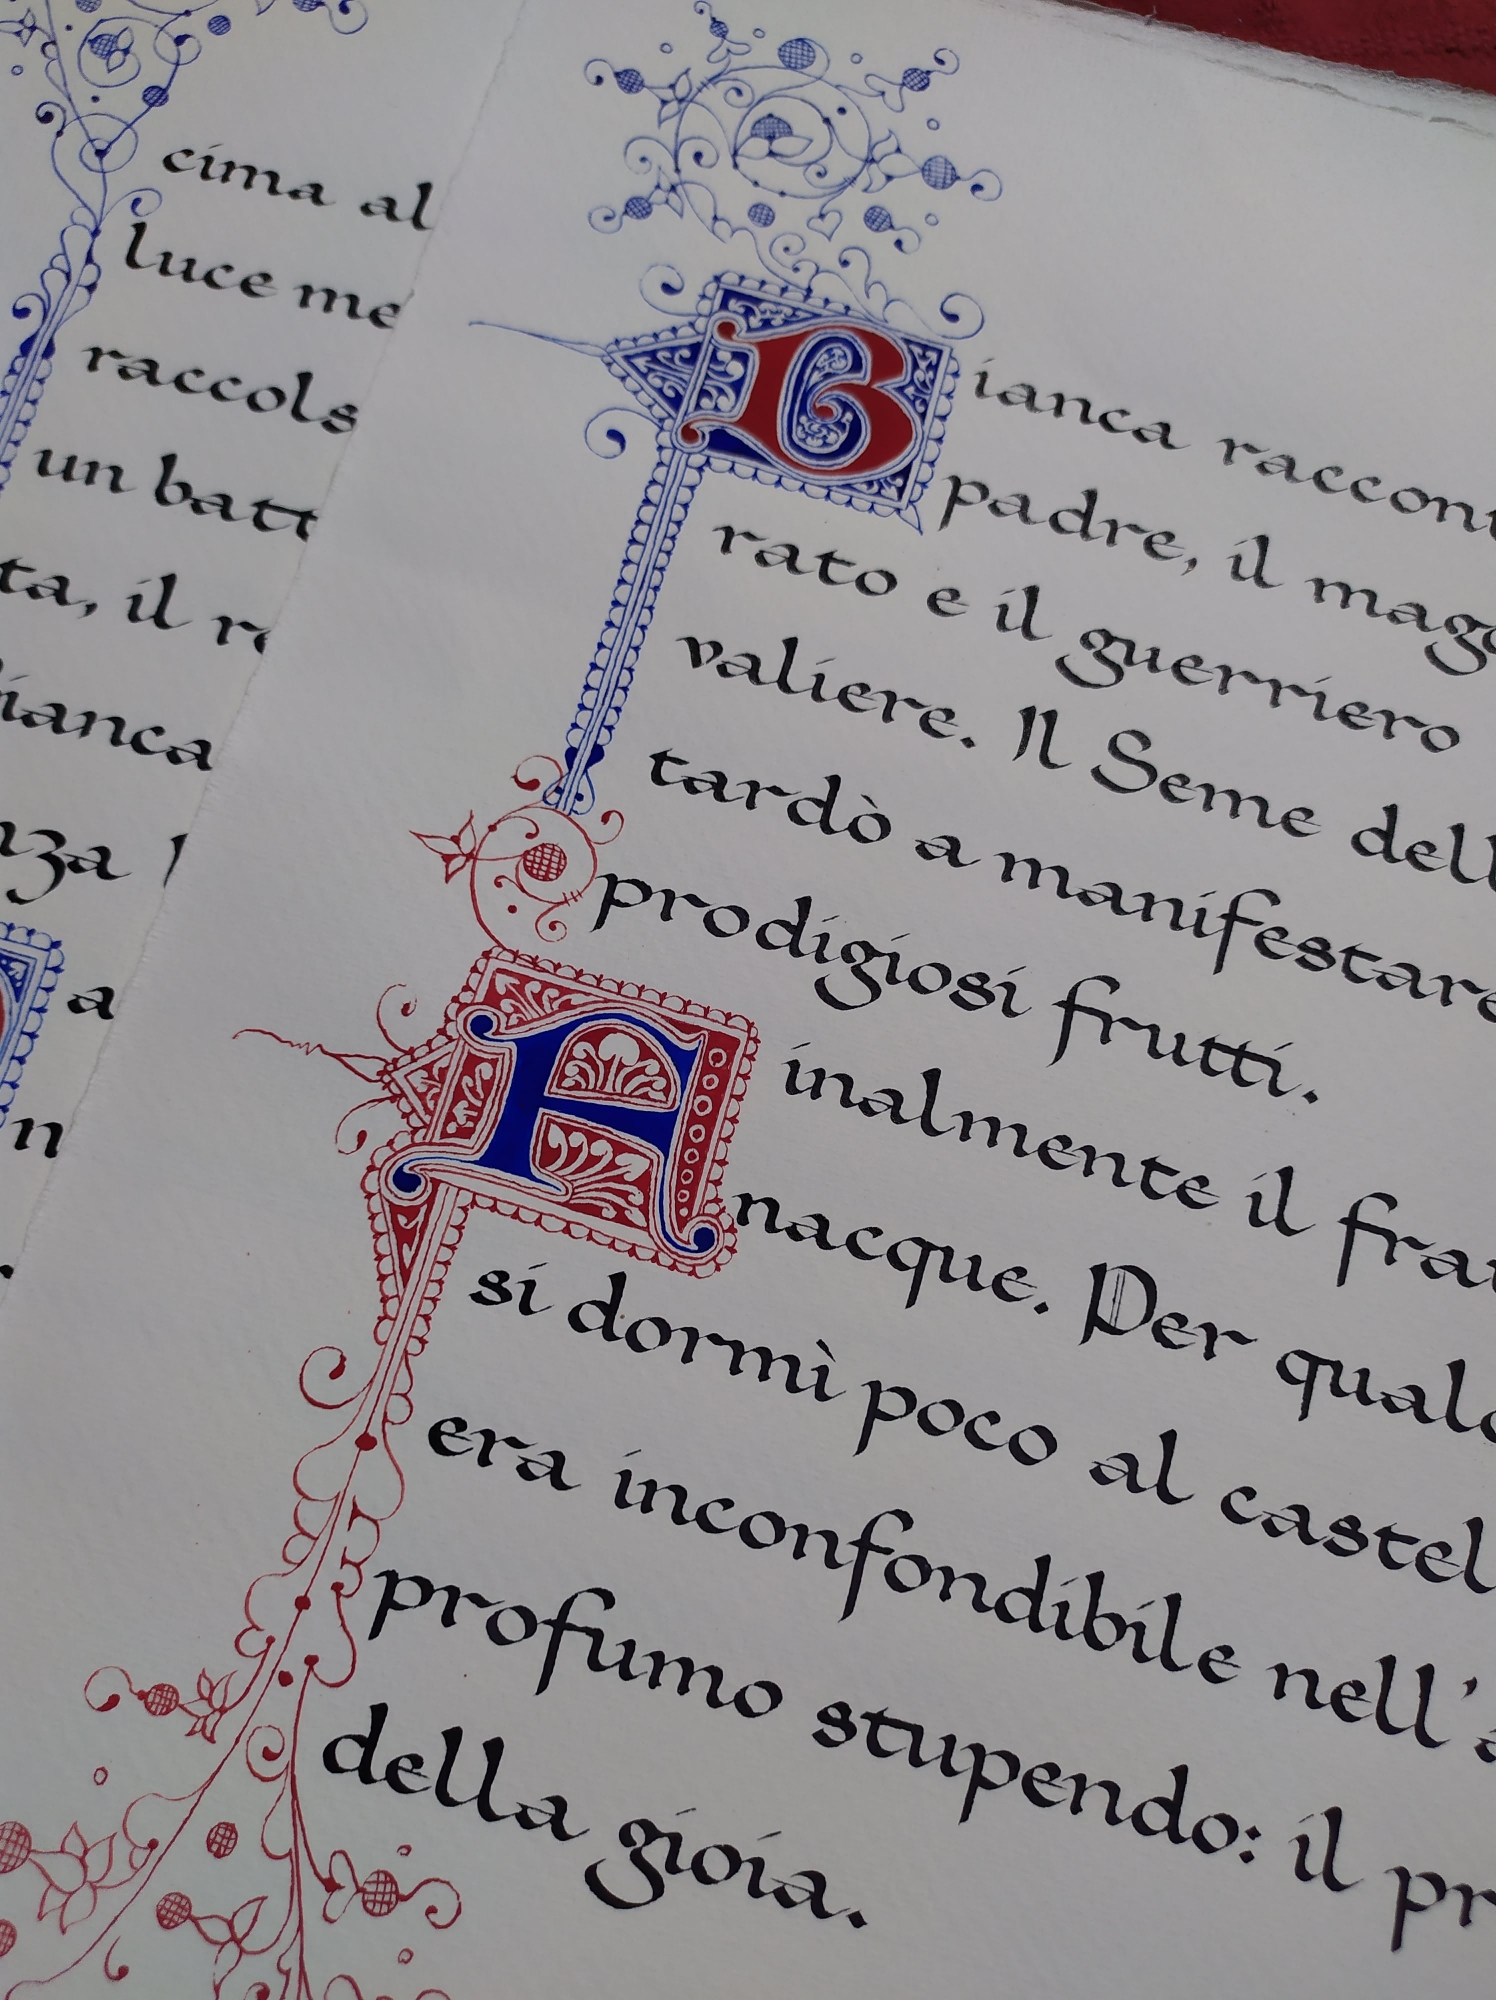 cima al
luce me
raccols
un batt
ta, il re
ianca
nza
a
n
Bianca raccont
padre, il mago
rato e il guerriero
valiere. Il Seme dell
tardò a manifestare
prodigiosi frutti.
Finalmente il frat
nacque. Per qualc
si dormì poco al castel
era inconfondibile nell'
profumo stupendo: il pr
della gioia.